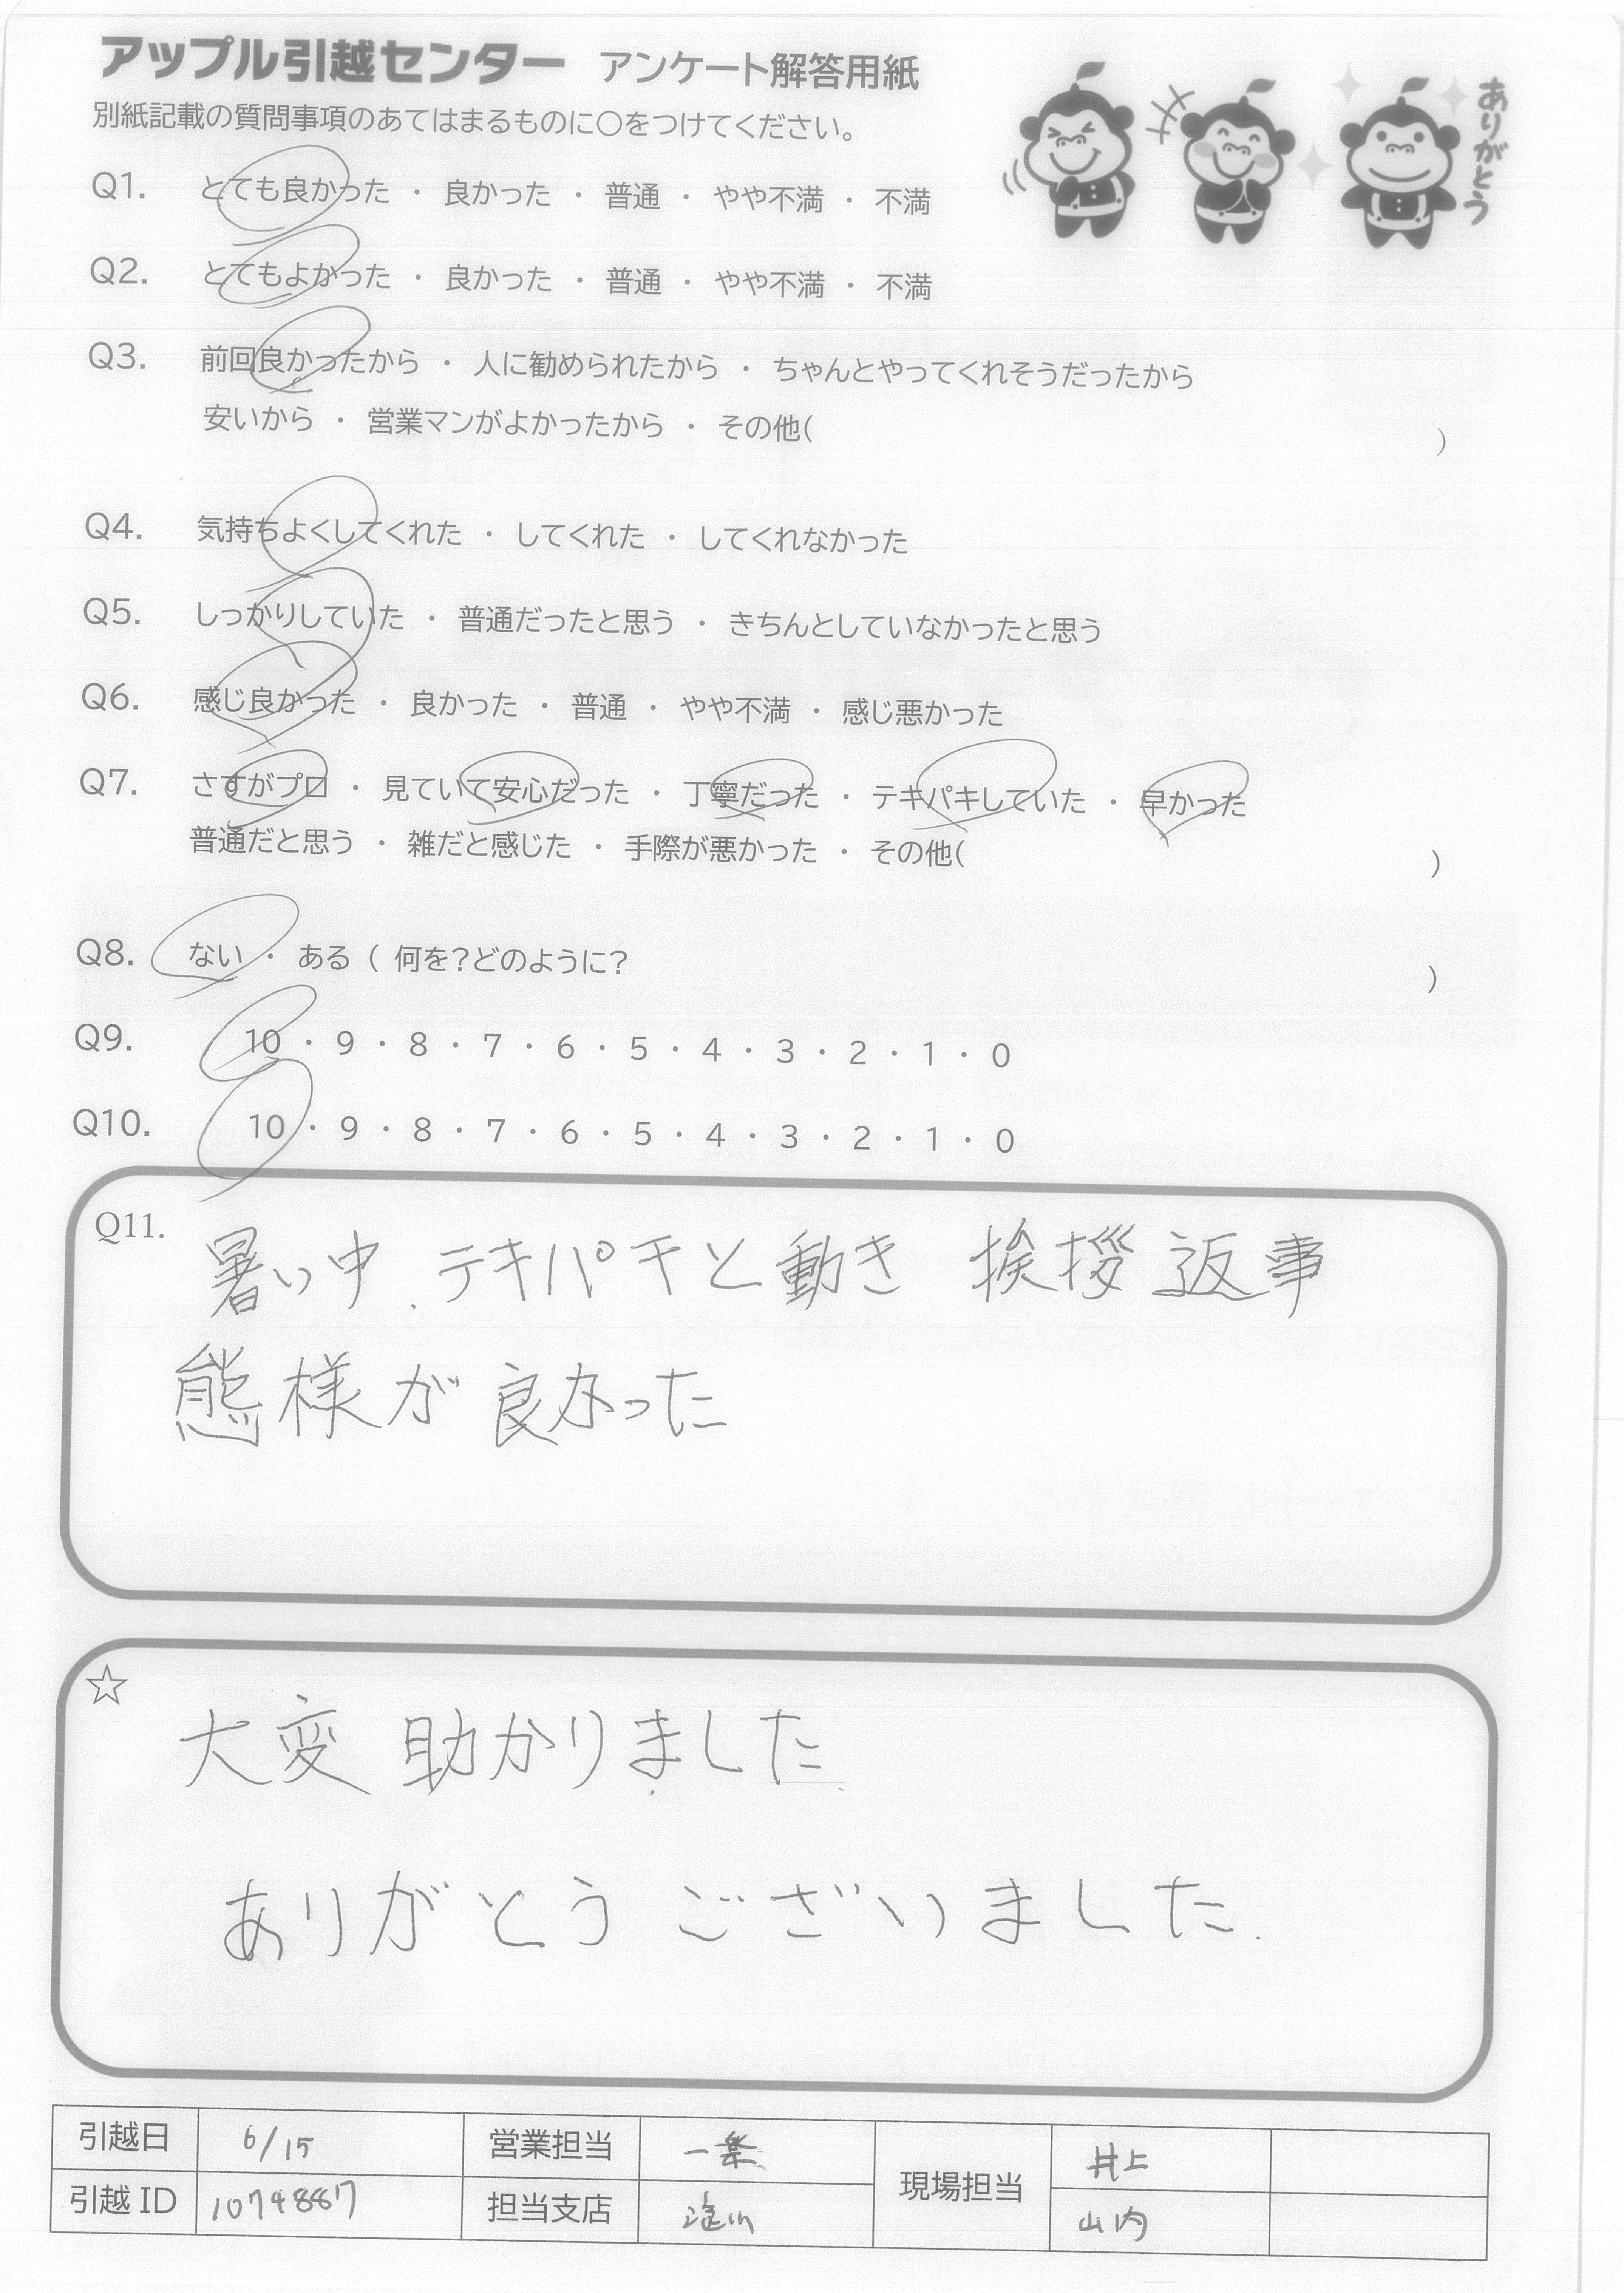 アップル引越センター アンケート解答用紙
別紙記載の質問事項のあてはまるものに〇をつけてください。
ありがとう
Q1. とても良かった ・ 良かった ・ 普通 ・ やや不満 ・ 不満
Q2. とてもよかった ・ 良かった ・ 普通 ・ やや不満 ・ 不満
Q3. 前回良かったから ・ 人に勧められたから ・ ちゃんとやってくれそうだったから
安いから ・ 営業マンがよかったから ・ その他( )
Q4. 気持ちよくしてくれた ・ してくれた ・ してくれなかった
Q5. しっかりしていた ・ 普通だったと思う ・ きちんとしていなかったと思う
Q6. 感じ良かった ・ 良かった ・ 普通 ・ やや不満 ・ 感じ悪かった
Q7. さすがプロ ・ 見ていて安心だった ・ 丁寧だった ・ テキパキしていた ・ 早かった
普通だと思う ・ 雑だと感じた ・ 手際が悪かった ・ その他( )
Q8. ない ・ ある ( 何を?どのように? )
Q9. 10 ・ 9 ・ 8 ・ 7 ・ 6 ・ 5 ・ 4 ・ 3 ・ 2 ・ 1 ・ 0
Q10. 10 ・ 9 ・ 8 ・ 7 ・ 6 ・ 5 ・ 4 ・ 3 ・ 2 ・ 1 ・ 0
Q11. 暑い中、テキパキと動き 挨拶 返事
態様が良かった
☆ 大変 助かりました
ありがとうございました.
引越日 6/15 営業担当 現場担当 井上
引越 ID 1074887 担当支店 山内